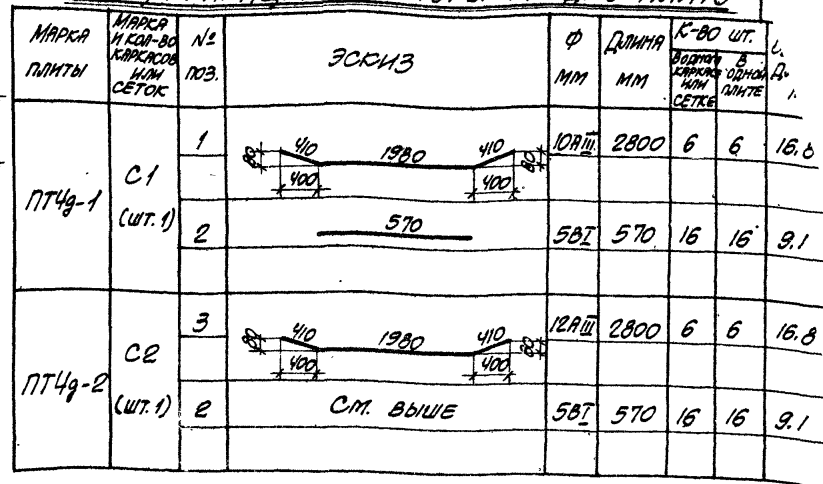 МАРКА ПЛИТЫ МАРКА И КОЛ-ВО КАРКАСОВ ИЛИ СЕТОК № ПОЗ. ЭСКИЗ Ф ММ ДЛИНА ММ К-ВО ШТ.
В ОДНОМ КАРКАСЕ ИЛИ СЕТКЕ В ОДНОЙ ПЛИТЕ
ПТ4д-1 С1 (ШТ.1)
1 80 410 1980 410 80 400 400 10АIII 2800 6 6 16.8
2 570 5ВI 570 16 16 9.1
ПТ4д-2 С2 (ШТ.1)
3 80 410 1980 410 80 400 400 12АIII 2800 6 6 16.8
2 СМ. ВЫШЕ 5ВI 570 16 16 9.1